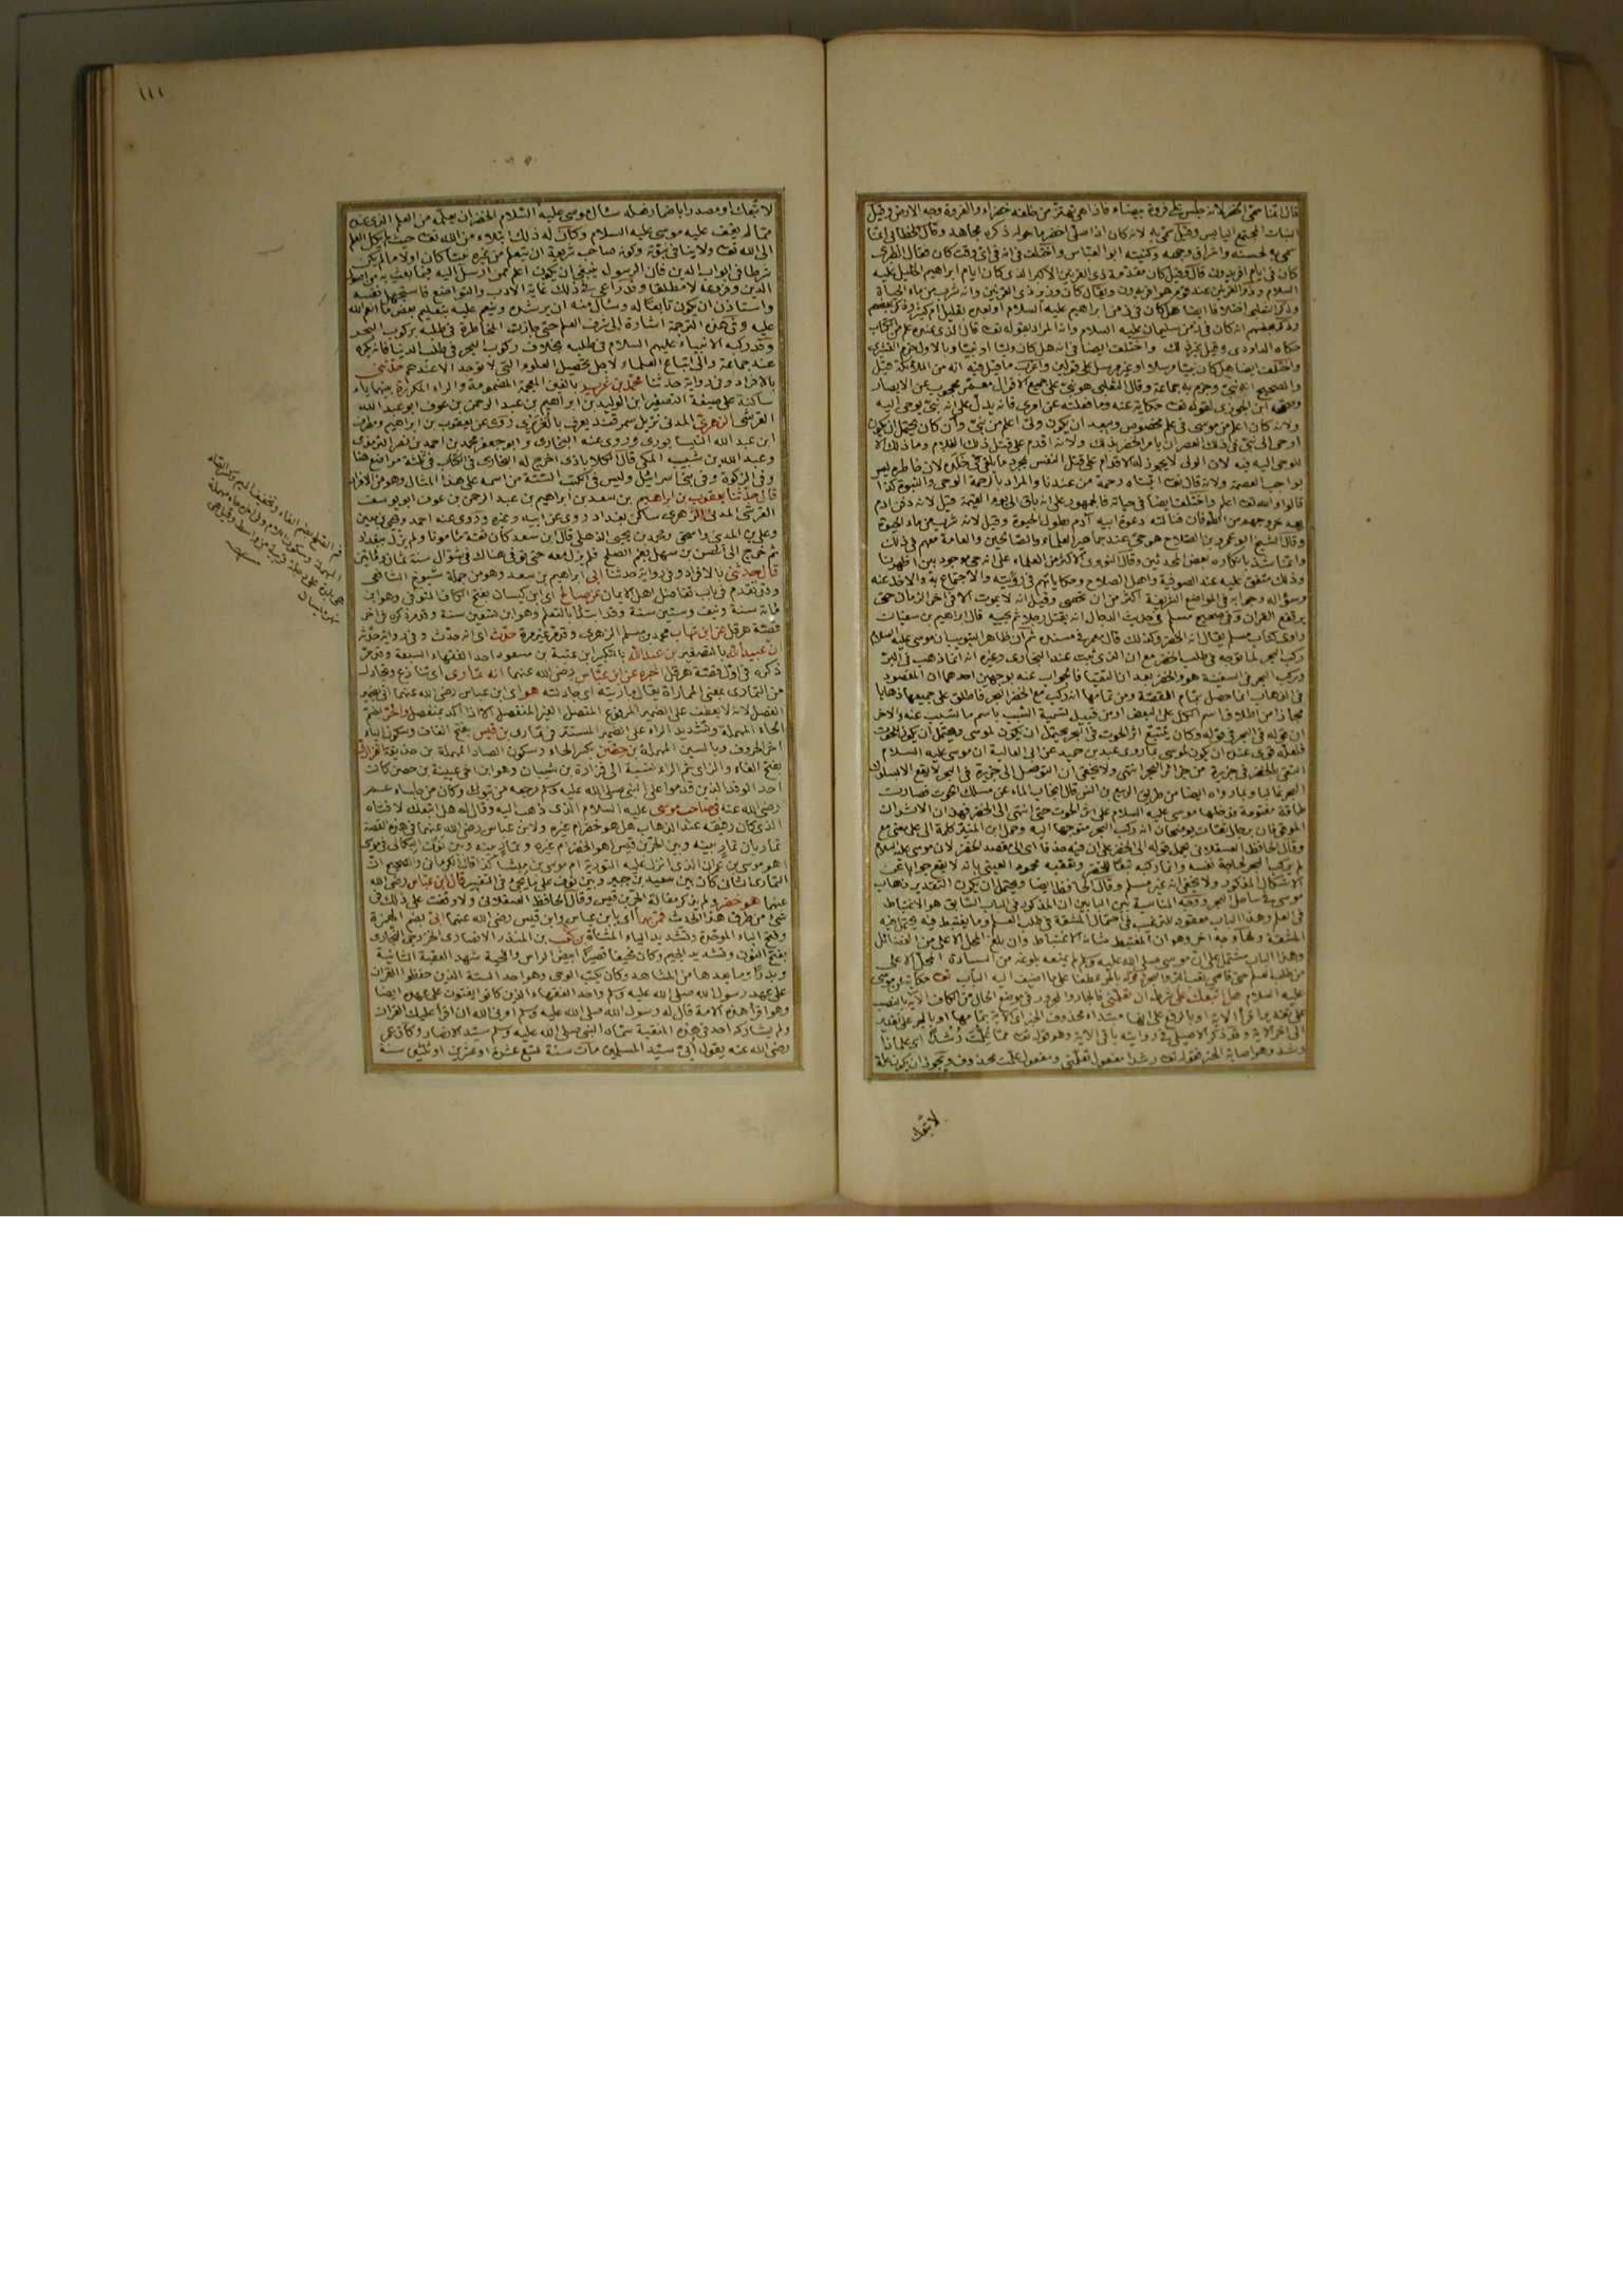 قال انما سمى الخضر لانه جلس على فروة بيضاء فاذا هى تهتز من خلفه خضراء والفروة وجه الارض وقيل
النبات المجتمع اليابس وقيل سمى به لانه كان اذا صلى اخضر ما حوله ذكره مجاهد وقال الخطابى انما
سمى به لحسنه واشراق وجهه وكنيته ابو العباس واختلف فى انه فى اى وقت كان فقال الطبرى
كان فى ايام افريدون قال وقيل كان مقدمة ذى القرنين الاكبر الذى كان ايام ابراهيم الخليل عليه
السلام وذو القرنين عند قوم هو افريدون ويقال كان وزير ذى القرنين وانه شرب من ماء الحياة
وذكر الثعلبى اختلافا ايضا هل كان فى زمن ابراهيم عليه السلام او بعده بقليل ام كثير وذكر بعضهم
وذكر بعضهم انه كان فى زمن سليمان عليه السلام وانه المراد بقوله تع قال الذى عنده علم من الكتاب
حكاه الداودى وقيل غير ذلك واختلف ايضا فى انه هل كان وليا او نبيا وبالاول جزم القشيرى
واختلف ايضا هل كان نبيا مرسلا او غير مرسل على قولين واغرب ما قيل فيه انه من الملائكة قيل
والصحيح انه نبى وجزم به جماعة وقال الثعلبى هو نبى على جميع الاقوال معمر محجوب عن الابصار
وصححه ابن الجوزى لقوله تع حكاية عنه وما فعلته عن امرى فانه يدل على انه نبى يوحى اليه
ولانه كان اعلم من موسى فى علم مخصوص ويبعد ان يكون ولى اعلم من نبى وان كان يحتمل ان يكون
اوحى الى نبى فى ذلك العصر ان يامر الخضر بذلك ولانه اقدم على قتل ذلك الغلام وما ذلك الا
للوحى اليه فيه لان الولى لا يجوز له الاقدام على قتل النفس بمجرد ما يلقى فى خلده لان خاطره ليس
بواجب العصمة ولانه قال تع اتيناه رحمة من عندنا والمراد بالرحمة الوحى والنبوة كذا
قالوا والله تع اعلم واختلف ايضا فى حياته فالجمهور على انه باق الى يوم القيمة قيل لانه دفن ادم
بعد خروجهم من الطوفان فنالته دعوة ابيه آدم بطول الحيوة وقيل لانه شرب من ماء الحيوة
وقال الشيخ ابو عمرو بن الصلاح هو حى عند جماهير العلماء والصالحين والعامة معهم فى ذلك
وانما شذ بانكاره بعض المحدثين وقال النووى الاكثر من العلماء على انه حى موجود بين اظهرنا
وذلك متفق عليه عند الصوفية واهل الصلاح وحكاياتهم فى رؤيته والاجتماع به والاخذ عنه
وسؤاله وجوابه فى المواضع الشريفة اكثر من ان تحصى وقيل انه لا يموت الا فى اخر الزمان حتى
يرتفع القران وفى صحيح مسلم فى حديث الدجال انه يقتل رجلا ثم يحييه قال ابراهيم بن سفيان
راوى كتاب مسلم يقال انه الخضر وكذلك قال معمر فى مسنده ثم ان ظاهر التبويب ان موسى عليه السلام
ركب البحر لما توجه فى طلب الخضر مع ان الذى ثبت عند البخارى وغيره انه انما ذهب فى البر
وركب البحر فى السفينة هو والخضر بعد ان التقيا فالجواب عنه بوجهين احدهما ان المقصود
فى الذهاب انما حصل بتمام القصة ومن تمامها انه ركب مع الخضر البحر فاطلق على جميعها ذهابا
مجازا من اطلاق اسم الكل على البعض او من قبيل تسمية السبب باسم ما تسبب عنه والاخر
ان قوله فى البحر فى قوله وكان يتتبع اثر الحوت فى البحر يحتمل ان يكون لموسى ويحتمل ان يكون للحوت
فلعله قوى عنده ان يكون لموسى بما روى عبد بن حميد عن ابى العالية ان موسى عليه السلام
التقى بالخضر فى جزيرة من جزائر البحر انتهى ولا يخفى ان التوصل الى جزيرة فى البحر لا يقع الا بسلوك
البحر غالبا وبما رواه ايضا من طريق الربيع بن انس قال انجاب الماء عن مسلك الحوت فصارت
طاقة مفتوحة فدخلها موسى عليه السلام على اثر الحوت حتى انتهى الى الخضر فهذان الاثران
الموقوفان برجال ثقات يوضحان انه ركب البحر متوجها اليه وحمل ابن المنير كلمة الى على معنى مع
وقال الحافظ العسقلانى يحمل قوله الى الخضر على ان فيه حذفا اى الى مقصد الخضر لان موسى عليه السلام
لم يركب البحر لحاجة نفسه وانما ركبه تبعا للخضر وتعقبه محمود العينى بانه لا يقع جوابا عن
الاشكال المذكور ولا يخفى انه غير مسلم وقال الحافظ ايضا ويحتمل ان يكون التقدير ذهاب
موسى فى ساحل البحر ووجه المناسبة بين البابين ان المذكور فى الباب السابق هو الاغتباط
فى العلم وهذا الباب معقود للترغيب فى احتمال المشقة فى طلب العلم وما يغتبط فيه يحتمل فيه
المشقة وثمة وجه اخر وهو ان المغتبط شانه الاغتباط وان بلغ المحل الاعلى من الفضائل
وهذا الباب مشتمل على ان موسى صلى الله عليه وسلم لم يمنعه بلوغه من السيادة المحل الاعلى
من طلب العلم حتى قاسى تعب البر والبحر وقوله بالجر عطفا على ما اضيف اليه الباب تع حكاية عن موسى
عليه السلام هل اتبعك على شرط ان تعلمنى فالجار والمجرور فى موضع الحال من الكاف الآية بالنصب
الى اخر الاية وقد ذكر الاصيلى فى روايته باقى الاية وهو قوله تع مما علمت رشدا اى علما ذا
رشد وهو اصابة الخير فقوله تع رشدا مفعول تعلمنى ومفعول علمت محذوف ويجوز ان يكون علة
لاتبعك
١١١
لاتبعك او مصدرا باضمار فعله سال موسى عليه السلام الخضر ان يعلمه من العلم الذى عنده
مما لم يقف عليه موسى عليه السلام وكان له ذلك ابتلاء من الله تع حيث لم يكل العلم
الى الله تع ولا ينافى نبوته وكونه صاحب شريعة ان يتعلم من غيره نبيا كان اولا ما لم يكن
شرطا فى ابواب الدين فان الرسول ينبغى ان يكون اعلم ممن ارسل اليه فيما بعث به من اصول
الدين وفروعه لا مطلقا وقد راعى فى ذلك غاية الادب والتواضع فاستجهل نفسه
واستاذن ان يكون تابعا له وسال منه ان يرشده وينعم عليه بتعليم بعض ما انعم الله
عليه وفى هذه الترجمة اشارة الى شرف العلم حتى جازت المخاطرة فى طلبه بركوب البحر
وقد ركبه الانبياء عليهم السلام فى طلبه بخلاف ركوب البحر فى طلب الدنيا فانه يكره
عند جماعة والى اتباع العلماء لاجل تحصيل العلوم التى لا توجد الا عندهم حدثنى
بالافراد وفى رواية حدثنا محمد بن غرير بالغين المعجمة المضمومة والراء المكررة بينهما ياء
ساكنة على صيغة التصغير ابن الوليد بن ابراهيم بن عبد الرحمن بن عوف ابو عبد الله
القرشى الزهرى المدنى نزيل سمرقند يعرف بالغريرى روى عن يعقوب بن ابراهيم ومطرف
ابن عبد الله النيسابورى وروى عنه البخارى وابو جعفر محمد بن احمد بن نصر الترمذى
وعبد الله بن شبيب المكى قال الكلاباذى اخرج له البخارى فى الكتاب فى ثلثة مواضع هنا
وفى الزكوة وفى بنى اسرائيل وليس فى الكتب الستة من اسمه على هذا المثال وهو من الافراد
قال حدثنا يعقوب بن ابراهيم بن سعد بن ابراهيم بن عبد الرحمن بن عوف ابو يوسف
القرشى المدنى الزهرى ساكن بغداد روى عن ابيه وغيره وروى عنه احمد ويحيى بن معين
وعلى بن المدينى واسحق ومحمد بن يحيى الذهلى قال ابن سعد كان ثقة مامونا ولم يزل ببغداد
ثم خرج الى الحسن بن سهل بفم الصلح فلم يزل معه حتى توفى هنالك فى شوال سنة ثمان ومائتين
قال حدثنى بالافراد وفى رواية حدثنا ابى ابراهيم بن سعد وهو من جملة شيوخ الشافعى
وقد تقدم فى باب تفاضل اهل الايمان عن صالح اى ابن كيسان بفتح الكاف المتوفى وهو ابن
مائة سنة ونيف وستين سنة وقد ابتدا بالتعلم وهو ابن تسعين سنة وقد مر ذكره فى اخر
قصة هرقل عن ابن شهاب محمد بن مسلم الزهرى وقد مر غير مرة حدث اى انه حدث وفى رواية حدثه
ان عبيد الله بالتصغير بن عبد الله بالتكبير ابن عتبة بن مسعود احد الفقهاء السبعة وقد مر
ذكره فى اول قصة هرقل اخبره عن ابن عباس رضى الله عنهما انه تمارى اى تنازع وتجادل
من التمارى بمعنى المماراة يقال ماريته اى جادلته هو اى ابن عباس رضى الله عنهما اتى بضمير
الفصل لانه لا يعطف على الضمير المرفوع المتصل الغير المنفصل الا اذا اكد بمنفصل والحر بضم
الحاء المهملة وتشديد الراء على الضمير المستتر فى تمارى بن قيس بفتح القاف وسكون الياء
اخر الحروف وبالسين المهملة بن حصن بكسر الحاء وسكون الصاد المهملة بن حذيفة الفزارى
بفتح الفاء والزاى ثم الراء نسبة الى فزارة بن شيبان وهو ابن اخى عيينة بن حصن كانت
احد الوفد الذين قدموا على النبى صلى الله عليه وسلم مرجعه من تبوك وكان من جلساء عمر
رضى الله عنه فى صاحب موسى عليه السلام الذى ذهب اليه وقال له هل اتبعك لا فتاه
الذى كان رفيقه عند الذهاب هل هو خضر ام غيره ولابن عباس رضى الله عنهما فى هذه القصة
تماريان تمار بينه وبين الحر بن قيس اهو الخضر ام غيره وتمار بينه وبين نوف البكالى فى موسى
اهو موسى بن عمران الذى انزل عليه التورية ام موسى بن ميشا كذا قال الكرمانى والصحيح ان
التمارى الثانى كان بين سعيد بن جبير وبين نوف على ما يجئ فى التفسير قال ابن عباس رضى الله
عنهما هو خضر ولم يذكر مقالة الحر بن قيس وقال الحافظ العسقلانى ولا وقفت على ذلك فى
شئ من طرق هذا الحديث فمر بهما اى بابن عباس وابن قيس رضى الله عنهما ابى بضم الهمزة
وفتح الباء الموحدة وتشديد الياء المثناة بن كعب بن المنذر الانصارى الخزرجى النجارى
بفتح النون وتشديد الجيم وكان نحيفا قصيرا ابيض الراس واللحية شهد العقبة الثانية
وبدرا وما بعدها من المشاهد وكان يكتب الوحى وهو احد الستة الذين حفظوا القران
على عهد رسول الله صلى الله عليه وسلم واحد الفقهاء الذين كانوا يفتون على عهده ايضا
وهو اقرا هذه الامة قال له رسول الله صلى الله عليه وسلم امرنى الله ان اقرا عليك القران
ولم يشاركه احد فى هذه المنقبة سماه النبى صلى الله عليه وسلم سيد الانصار وكان عمر
رضى الله عنه يقول ابى سيد المسلمين مات سنة تسع عشرة او عشرين او ثلثين سنة